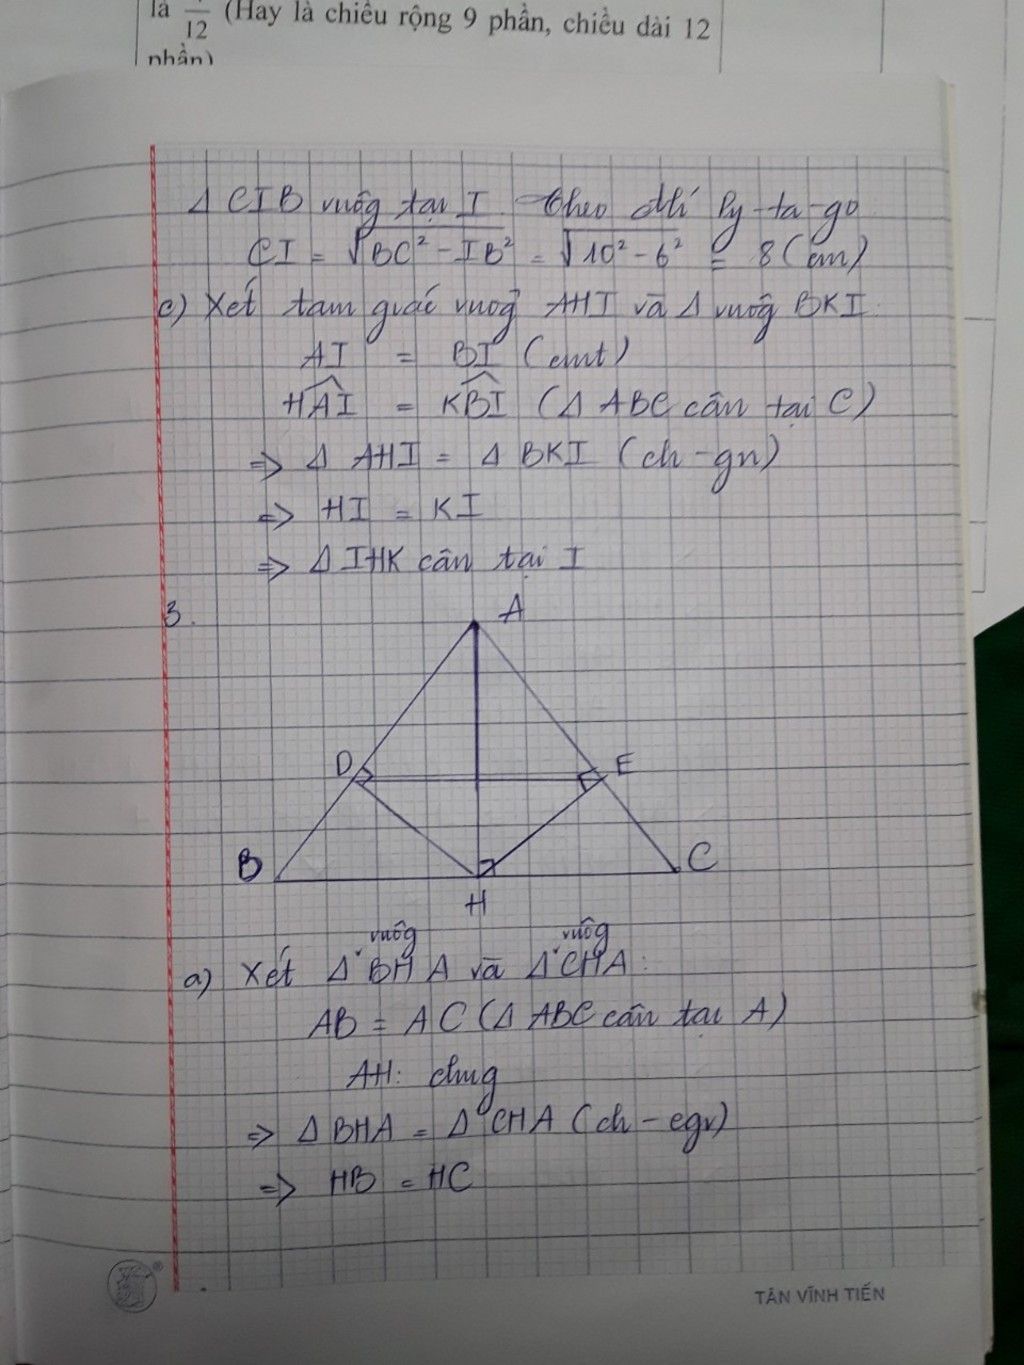 là /12 (Hay là chiều rộng 9 phần, chiều dài 12
phần)
Δ CIB vuôg tại I. theo đlí Py-ta-go
CI = √BC² - IB² = √10² - 6² = 8 (cm)
c) Xét tam giác vuôg AHI và Δ vuôg BKI:
AI = BI (cmt)
HAI = KBI (Δ ABC cân tại C)
=> Δ AHI = Δ BKI (ch - gn)
=> HI = KI
=> Δ IHK cân tại I
3.
A
D E
B C
H
vuôg vuôg
a) Xét Δ BHA và Δ CHA:
AB = AC (Δ ABC cân tại A)
AH: chug
=> Δ BHA = Δ CHA (ch - cgv)
=> HB = HC
®
TÂN VĨNH TIẾN